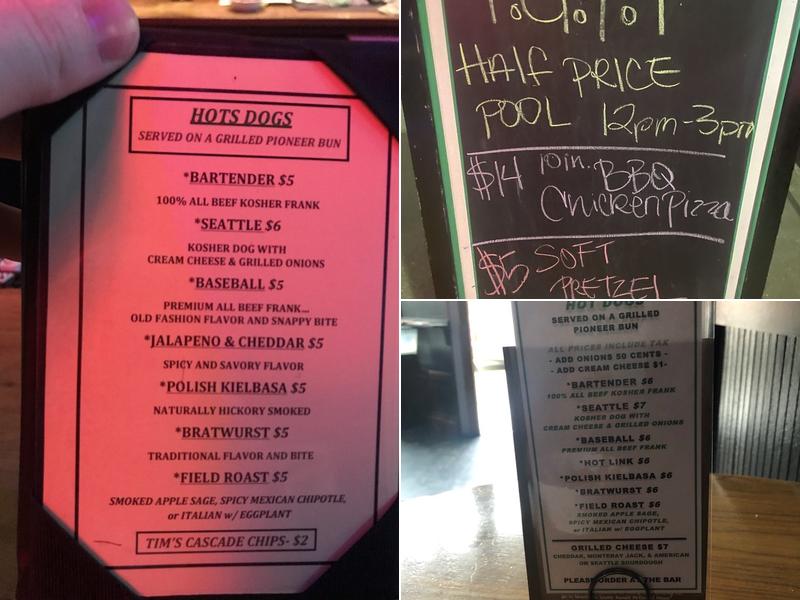 HOTS DOGS
SERVED ON A GRILLED PIONEER BUN
*BARTENDER $5
100% ALL BEEF KOSHER FRANK
*SEATTLE $6
KOSHER DOG WITH
CREAM CHEESE & GRILLED ONIONS
*BASEBALL $5
PREMIUM ALL BEEF FRANK...
OLD FASHION FLAVOR AND SNAPPY BITE
*JALAPENO & CHEDDAR $5
SPICY AND SAVORY FLAVOR
*POLISH KIELBASA $5
NATURALLY HICKORY SMOKED
*BRATWURST $5
TRADITIONAL FLAVOR AND BITE
*FIELD ROAST $5
SMOKED APPLE SAGE, SPICY MEXICAN CHIPOTLE,
or ITALIAN w/ EGGPLANT
TIM'S CASCADE CHIPS- $2
HALF PRICE
POOL 12pm-3pm
$14 10 in. BBQ
Chicken Pizza
$5 SOFT
PRETZEL
HOT DOGS
SERVED ON A GRILLED
PIONEER BUN
ALL PRICES INCLUDE TAX
- ADD ONIONS 50 CENTS -
- ADD CREAM CHEESE $1-
*BARTENDER $6
100% ALL BEEF KOSHER FRANK
*SEATTLE $7
KOSHER DOG WITH
CREAM CHEESE & GRILLED ONIONS
*BASEBALL $6
PREMIUM ALL BEEF FRANK
*HOT LINK $6
*POLISH KIELBASA $6
*BRATWURST $6
*FIELD ROAST $6
SMOKED APPLE SAGE,
SPICY MEXICAN CHIPOTLE,
or ITALIAN w/ EGGPLANT
GRILLED CHEESE $7
CHEDDAR, MONTERAY JACK, & AMERICAN
ON SEATTLE SOURDOUGH
PLEASE ORDER AT THE BAR